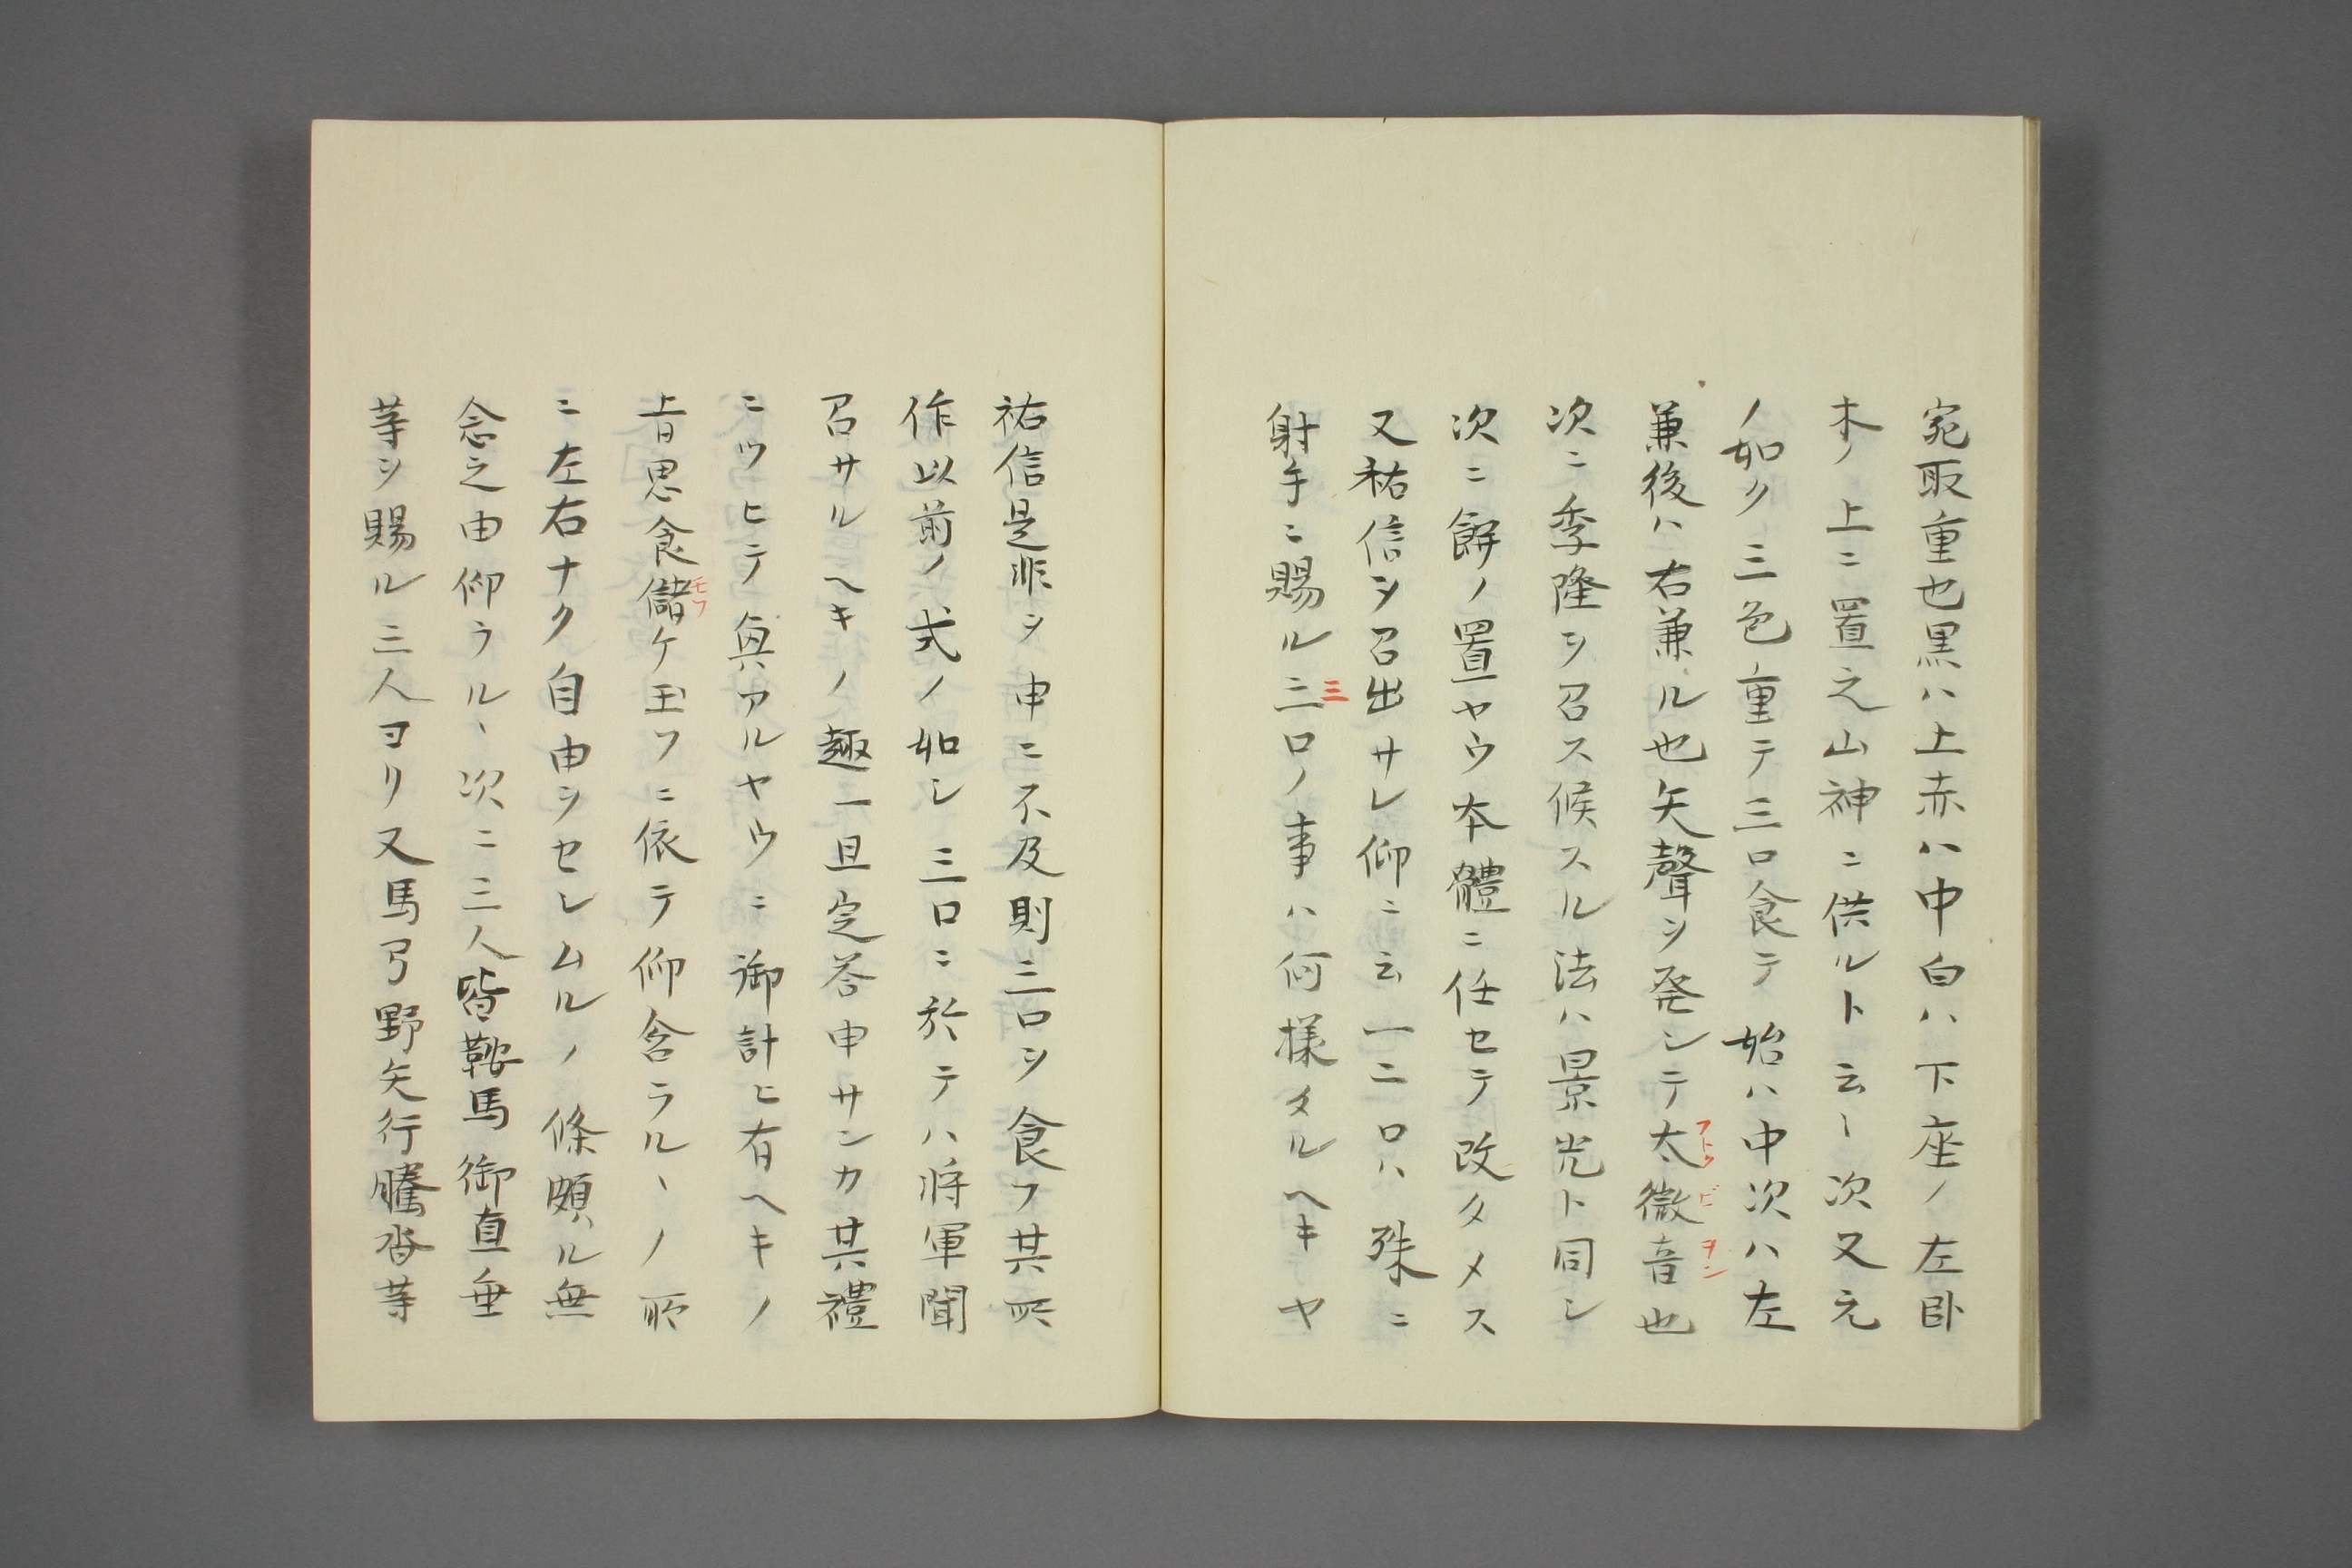 宛取重也黒ハ上赤ハ中白ハ下座ノ左臥
木ノ上ニ置之山神ニ供ルト云〻次又元
ノ如ク三色重テ三口食テ始ハ中次ハ左
兼後ハ右兼ル也矢聲ヲ発シテ太微音也
フトク ビ ヲン
次ニ季隆ヲ召ス候スル法ハ景光ト同シ
次ニ餅ノ置ヤウ本體ニ任セテ改タメス
又祐信ヲ召出サレ仰ニ云一二口ハ殊ニ
射手ニ賜ル三口ノ事ハ何様タルヘキヤ
三
祐信是非ヲ申ニ不及則三口ヲ食フ其所
作以前ノ式ノ如シ三口ニ於テハ将軍聞
召サルヘキノ趣一旦定答申サンカ其禮
ニツヒテ興アルヤウニ御計ヒ有ヘキノ
旨思食儲ケ玉フニ依テ仰含ラルヽノ所
モフ
ニ左右ナク自由ヲセレムルノ條頗ル無
念之由仰ラルヽ次ニ三人皆鞍馬御直垂
等ヲ賜ル三人ヨリ又馬弓野矢行騰沓等